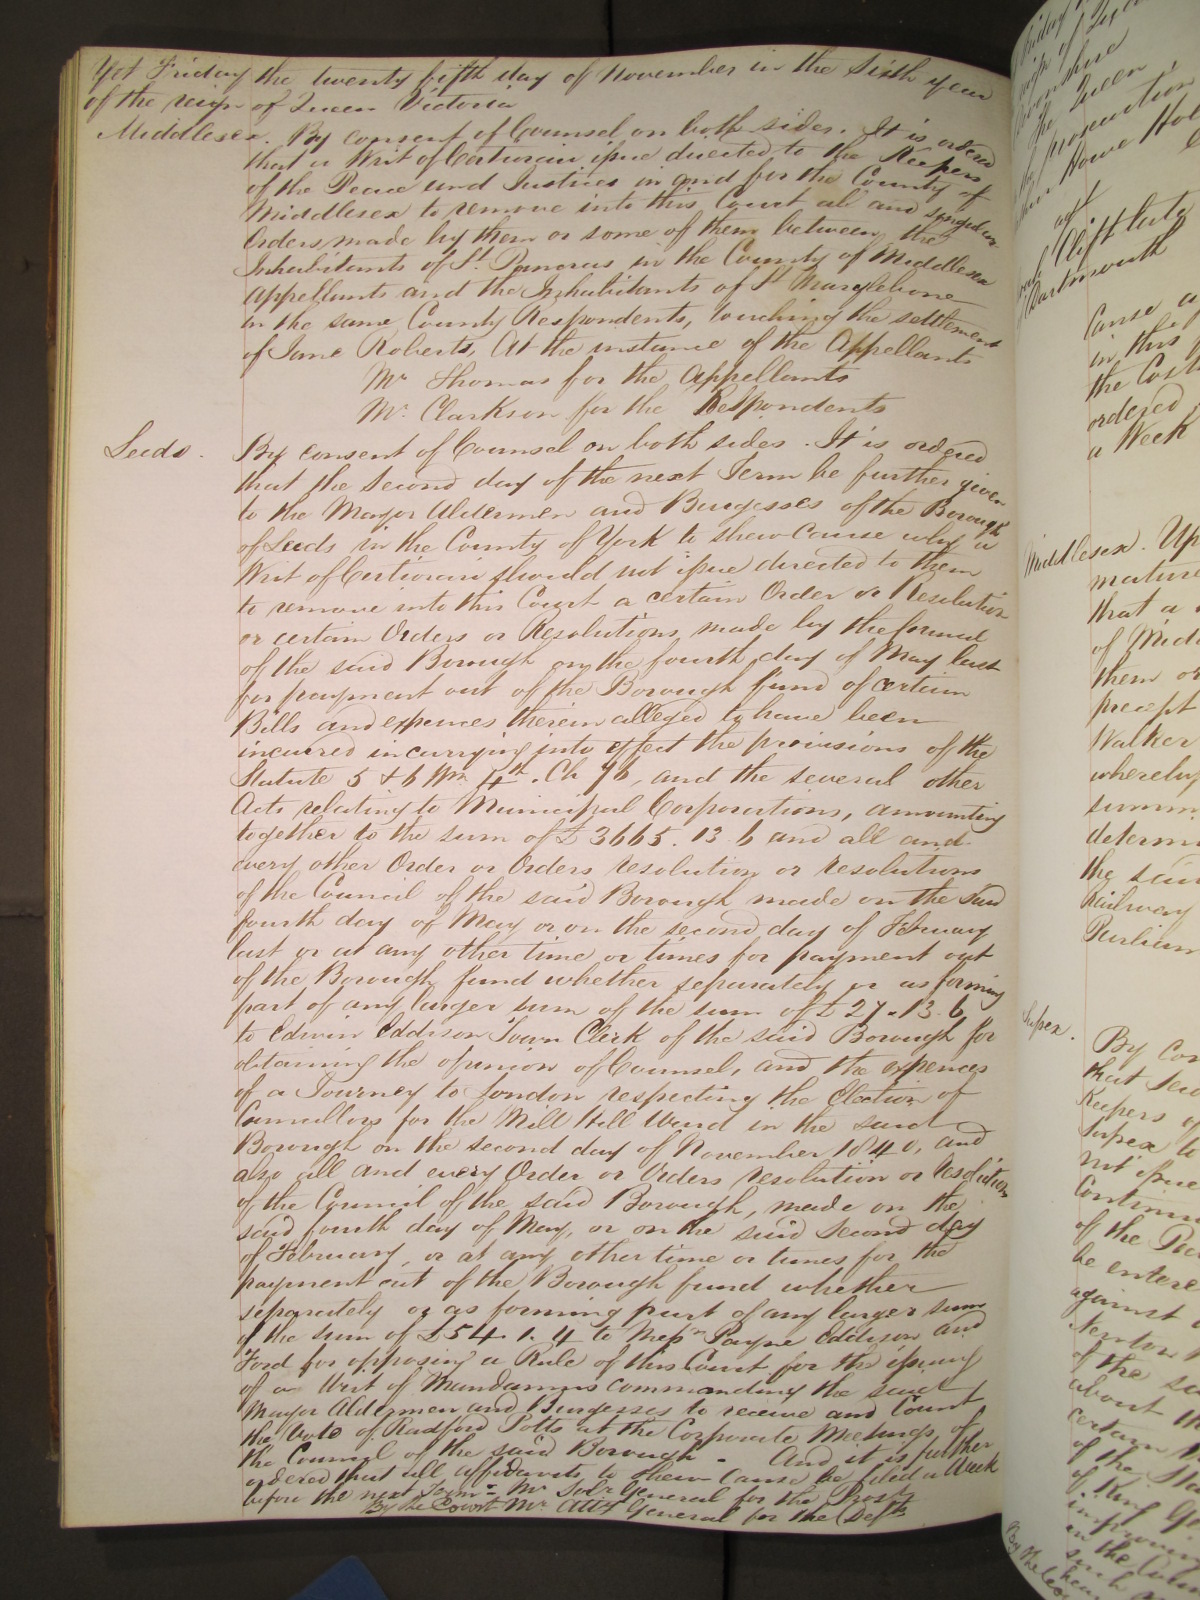 Yet Friday the twenty fifth day of November in the Sixth year
of the reign of Queen Victoria
Middlesex. By consent of Counsel on both sides. It is ordered
that a Writ of Certiorari issue directed to the Keepers
of the Peace and Justices in and for the County of
Middlesex to remove into this Court all and singular
Orders made by them or some of them between the
Inhabitants of St. Pancras in the County of Middlesex
Appellants and the Inhabitants of St Marylebone
in the same County Respondents, touching the settlement
of Jane Roberts, At the instance of the Appellants
Mr Thomas for the Appellants
Mr. Clarkson for the Respondents
Leeds. By consent of Counsel on both sides. It is ordered
that the Second day of the next Term be further given
to the Mayor Aldermen and Burgesses of the Borough
of Leeds in the County of York to shew Cause why a
Writ of Certiorari should not issue directed to them
to remove into this Court a certain Order or Resolution
or certain Orders or Resolutions made by the Council
of the said Borough on the fourth day of May last
for payment out of the Borough fund of certain
Bills and expences therein alleged to have been
incurred in carrying into effect the provisions of the
Statute 5 & 6 Wm 4th. Ch 76, and the several other
Acts relating to Municipal Corporations, amounting
together to the sum of £3665. 13. 6 and all and
every other Order or Orders resolution or resolutions
of the Council of the said Borough made on the said
fourth day of May or on the second day of February
last or at any other time or times for payment out
of the Borough fund whether separately or as forming
part of any larger sum of the sum of £27. 13. 6
to Edwin Eddison Town Clerk of the said Borough for
obtaining the opinion of Counsel, and the expences
of a Journey to London respecting the Election of
Councillors for the Mill Hill Ward in the said
Borough on the second day of November 1840, and
also all and every Order or Orders resolution or resolutions
of the Council of the said Borough, made on the
said fourth day of May, or on the said Second day
of February, or at any other time or times for the
payment out of the Borough fund whether
separately or as forming part of any larger sum
of the sum of £54. 1. 4 to Messrs Payne Eddison and
Ford for opposing a Rule of this Court for the issuing
of a Writ of Mandamus commanding the said
Mayor Aldermen and Burgesses to receive and Count
the Vote of Radford Potts at the Corporate Meetings of
the Council of the said Borough. And it is further
ordered that all affidavits to shew Cause be filed a Week
before the next Term. Mr Solr General for the Prosr
By the Court Mr Atty General for the Defts
Cause
in this
the Costs
ordered
a Week
Middlesex. Up
mature
that a
of Midd
them or
precept
Walker
whereby
summ
determ
the said
Railway
Parliam
Sussex.
By Con
that Sec
Keepers of
Sussex to
not issue
Continu
of the Pea
be entere
against
Newton
of the sa
about th
certain
of the Sta
of King Geo
improving
in the Coun
such
By the Court